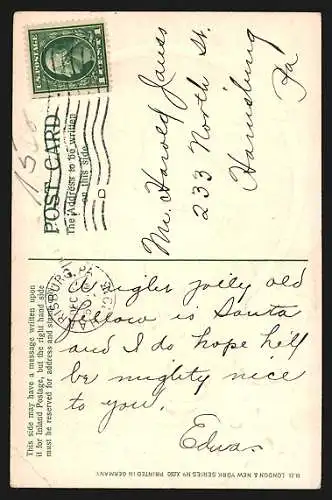 U.S. POSTAGE
POST CARD
The Address to be written
on this side
Mr. Harold Jauss
233 North St.
Harrisburg
Pa
This side may have a message written upon
it for Inland Postage, but the right hand side
must be reserved for address and stamp
A right jolly old
fellow is Santa
and I do hope he'll
be mighty nice
to you.
Edna.
LONDON & NEW YORK SERIES Nº PRINTED IN GERMANY